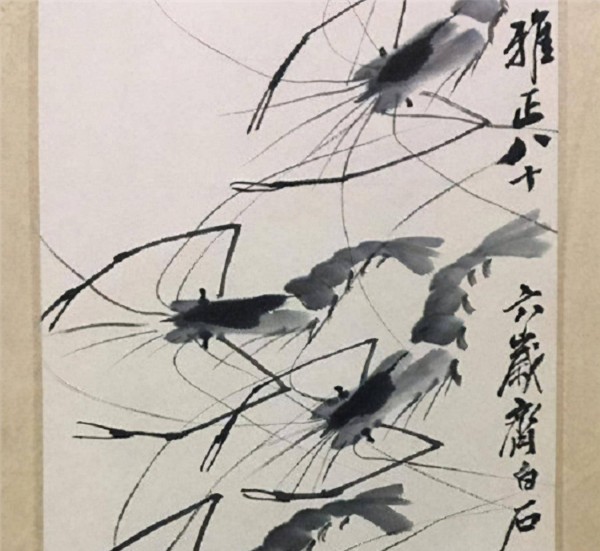 雅正八十六歲齊白石